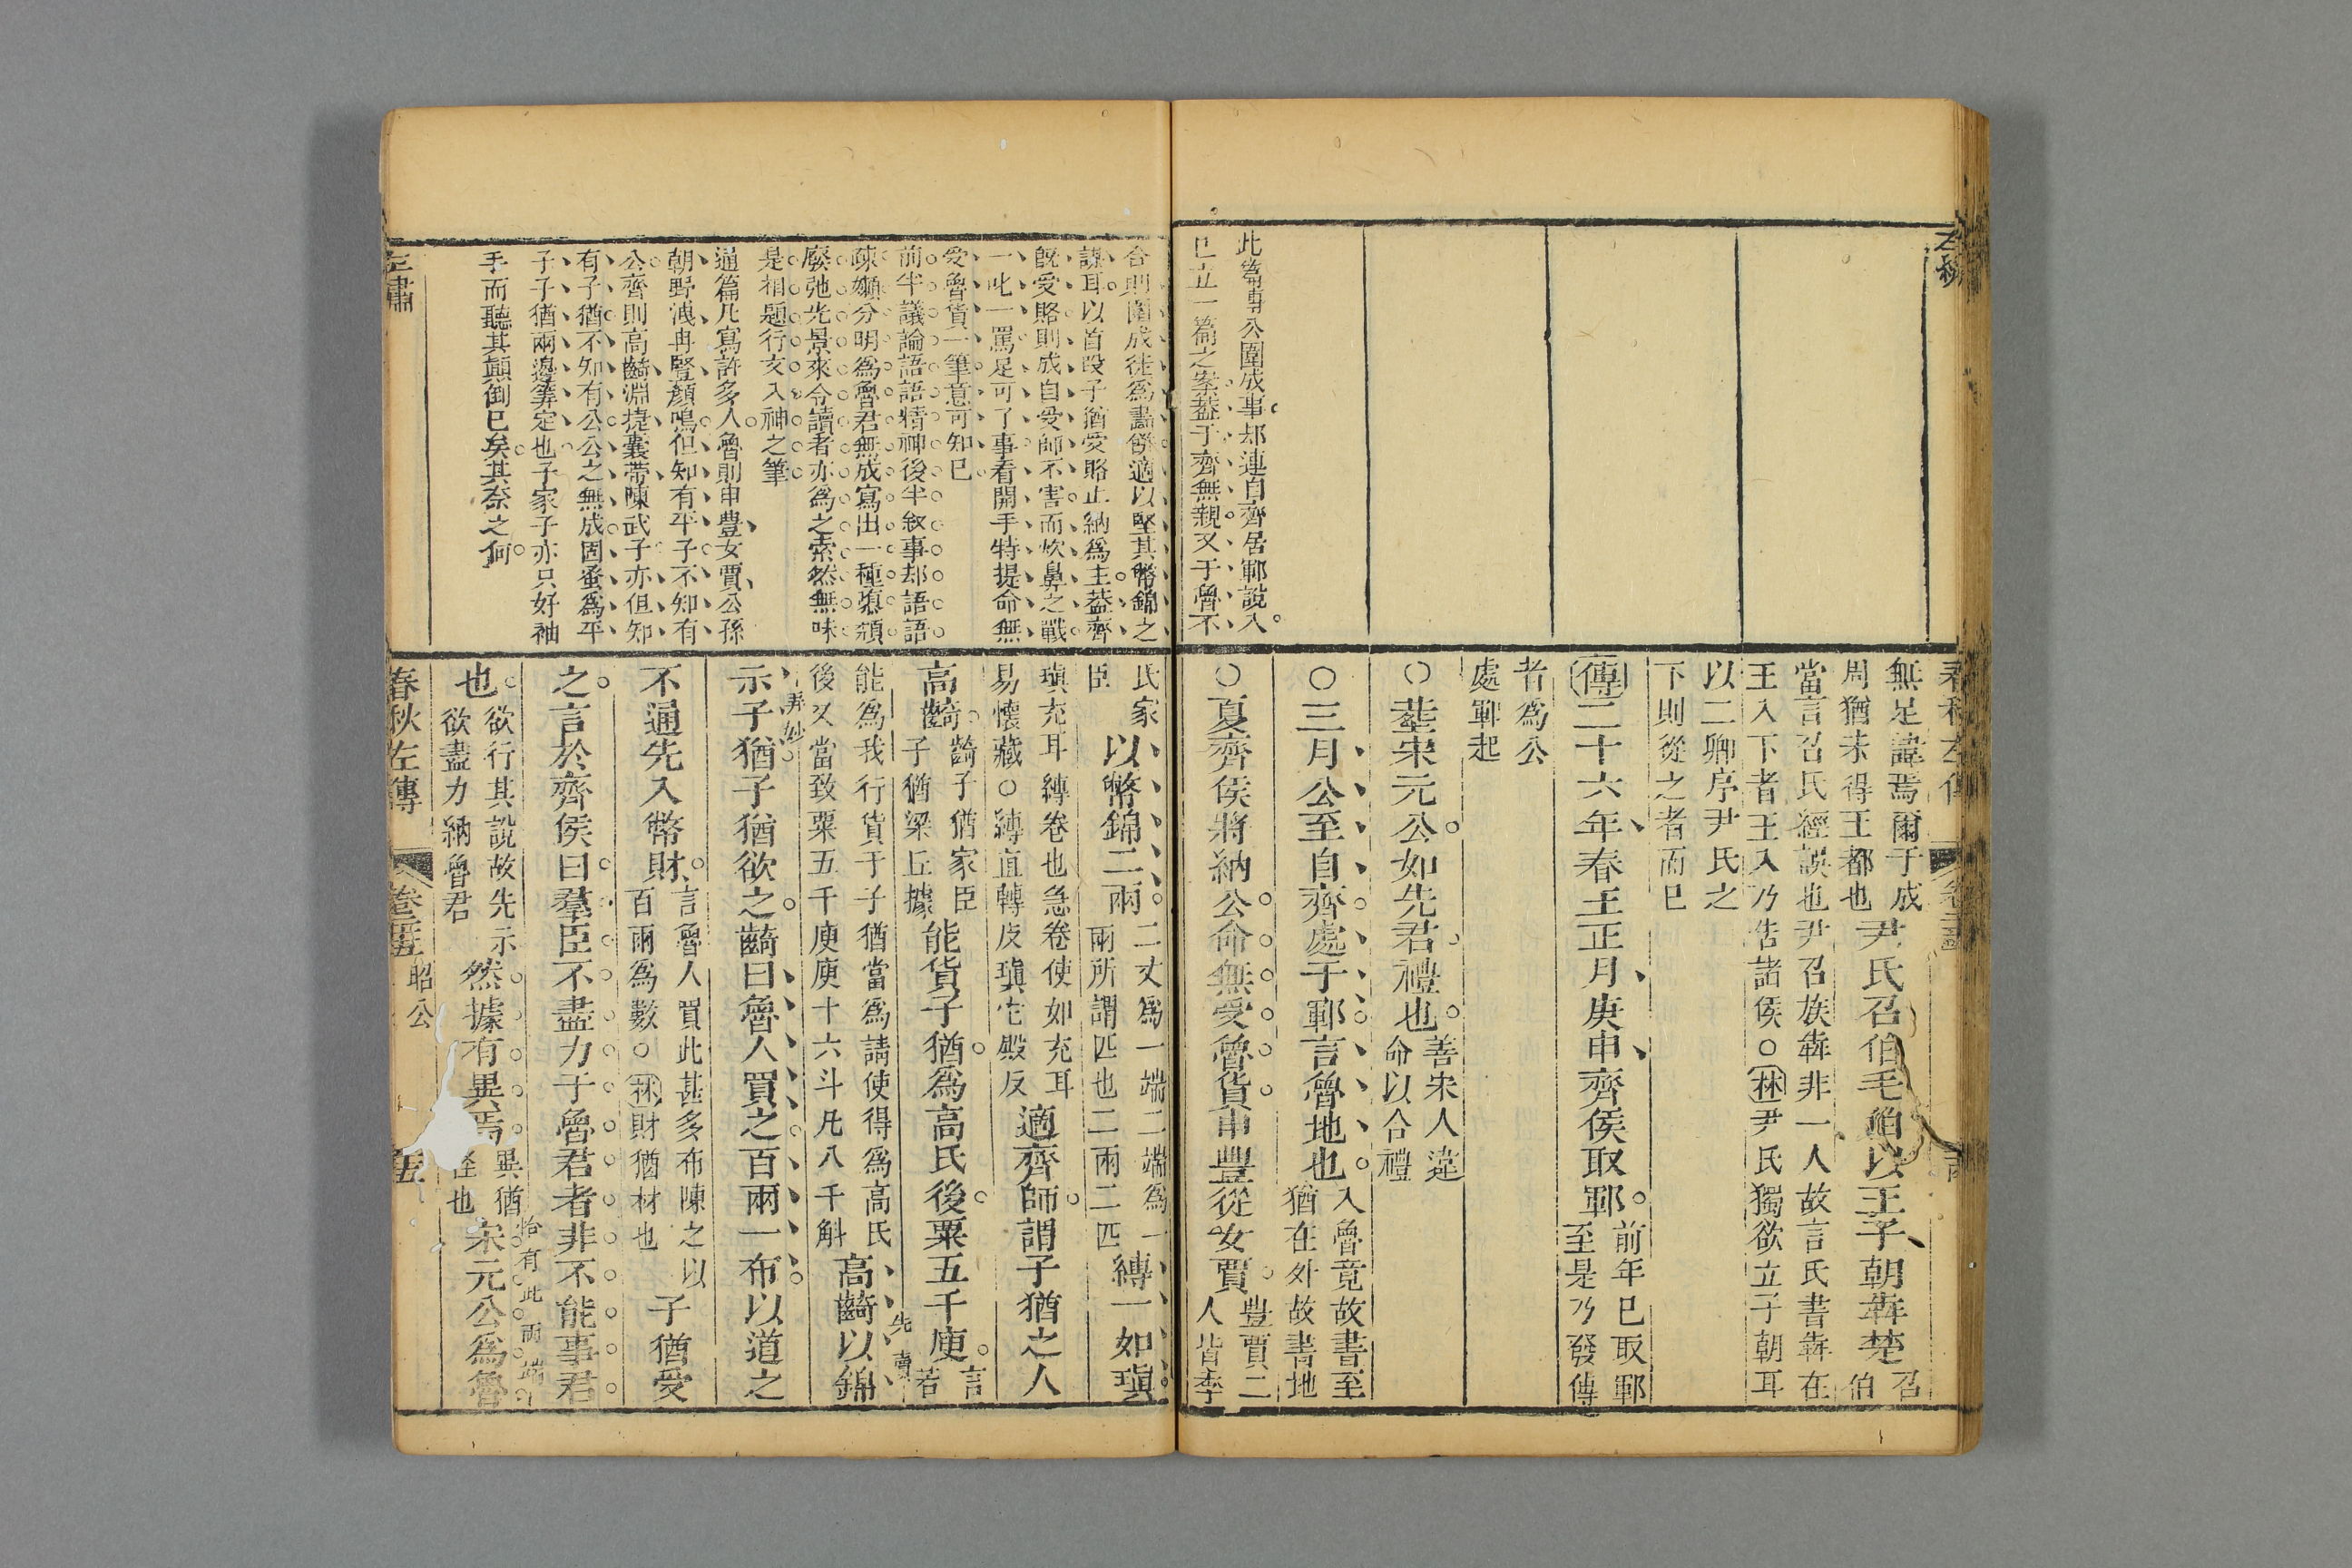 此篇專公圍成事却連自齊居鄆說入
已立一篇之案葢于齊無親又于魯不
無足諱焉爾于成
周猶未得王都也
尹氏召伯毛伯以王子朝奔楚
召
伯
當言召氏經誤也尹召族奔非一人故言氏書奔在
王入下者王入乃告諸侯○林尹氏獨欲立子朝耳
以二卿序尹氏之
下則從之者而已
傳二十六年春王正月庚申齊侯取鄆
前年已取鄆
至是乃發傳
者爲公
處鄆起
○葬宋元公如先君禮也
善宋人違
命以合禮
○三月公至自齊處于鄆言魯地也
入魯竟故書至
猶在外故書地
○夏齊侯將納公命無受魯貨申豐從女賈
豐賈二
人皆季
合則圍成徒爲畫餅適以堅其幣錦之
謀耳以首段子猶受賂止納爲主葢齊
旣受賂則成自受師不害而炊鼻之戰
一叱一罵足可了事看開手特提命無
受魯貨一筆意可知已
前半議論語語精神後半敘事却語語
疎嬾分明爲魯君無成寫出一種頽
廢弛光景來令讀者亦爲之索然無味
是相題行文入神之筆
通篇凡寫許多人魯則申豊女賈公孫
朝野洩冉豎顏鳴但知有平子不知有
公齊則高齮淵捷囊帶陳武子亦但知
有子猶不知有公公之無成固蚤爲平
子子猶兩邊筭定也子家子亦只好袖
手而聽其顛倒已矣其奈之何
氏家
臣
以幣錦二兩
二丈爲一端二端爲一
兩所謂匹也二兩二匹
縳一如瑱
瑱充耳縳卷也急卷使如充耳
易懷藏○縳直轉反瑱它殿反
適齊師謂子猶之人
高齮
齮子猶家臣
子猶梁丘據
能貨子猶爲高氏後粟五千庾
言
若
能爲我行貨于子猶當爲請使得爲高氏
後又當致粟五千庾庾十六斗凡八千斛
高齮以錦
先賣
弄妙
示子猶子猶欲之齮曰魯人買之百兩一布以道之
不通先入幣財
言魯人買此甚多布陳之以
百兩爲數○林財猶材也
子猶受
之言於齊侯曰羣臣不盡力于魯君者非不能事君
也
欲行其說故先示
欲盡力納魯君
然據有異焉
異猶
怪也
宋元公爲魯
恰有此兩端
春秋左傳
昭公